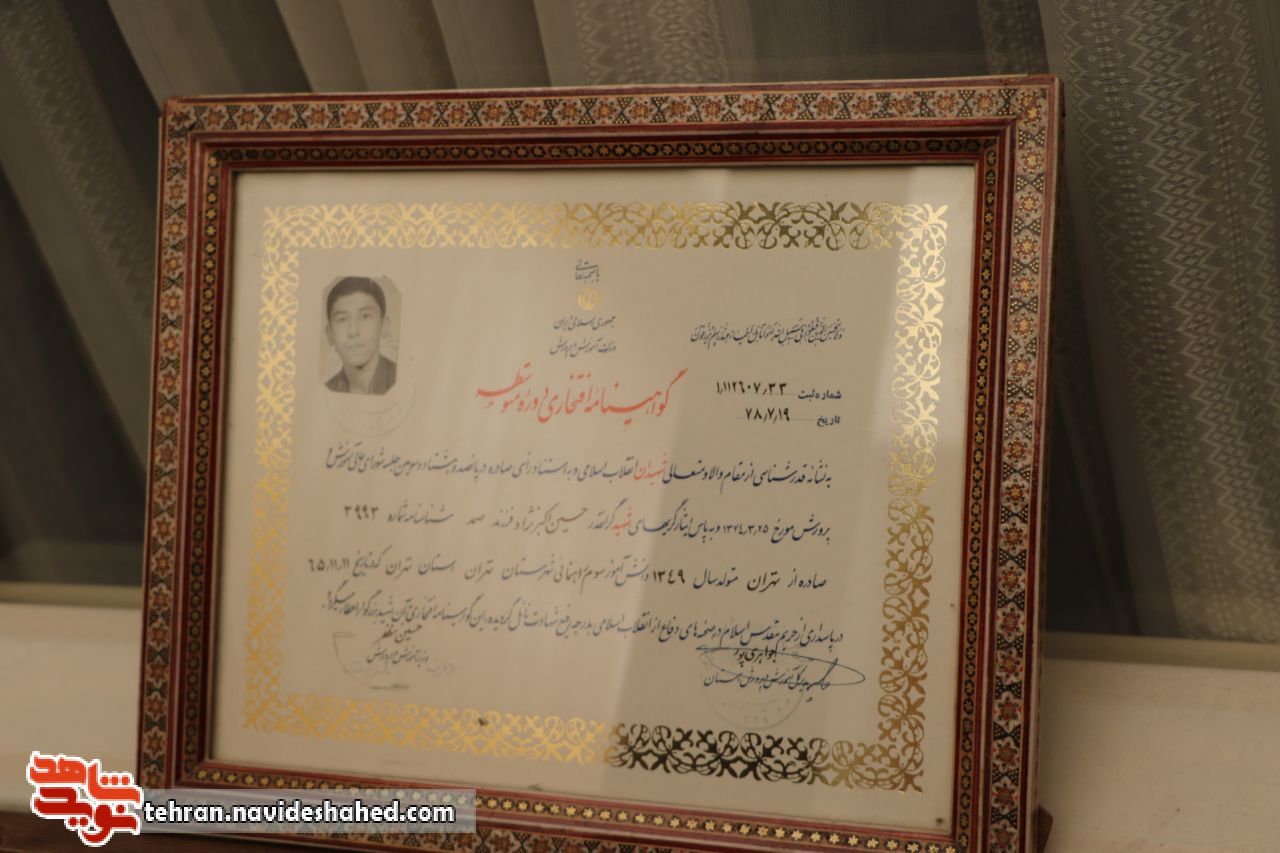 باسمه تعالی
جمهوری اسلامی ایران
وزارت آموزش و پرورش
ولا تحسبن الذین قتلوا فی سبیل الله امواتا بل احیاء عند ربهم یرزقون
شماره ثبت ۱٫۱۱۲۶۰۷٫۳۳
تاریخ ۷۸٫۷٫۱۹
گواهینامهٔ افتخاری دورهٔ متوسطه
به نشانه قدرشناسی از مقام والا و متعالی شهیدان انقلاب اسلامی و به استناد رأی صادره در پانصد و هشتاد و سومین جلسه شورای عالی آموزش و
پرورش مورخ ۱۳۷۴٫۳٫۲۵ و به پاس ایثارگریهای شهید گرانقدر حسین اکبرنژاد فرزند صمد شناسنامه شماره ۳۹۹۳
صادره از تهران متولد سال ۱۳۴۹ دانش آموز سوم راهنمائی شهرستان تهران استان تهران که در تاریخ ۶۵٫۱۱٫۱۱
در پاسداری از حریم مقدس اسلام در صحنه های دفاع از انقلاب اسلامی به درجه رفیع شهادت نائل گردیده، این گواهینامه افتخاری به آن شهید بزرگوار اعطا میگردد.
حسین مظفر
وزیر آموزش و پرورش
جواهری پور
مدیرکل آموزش و پرورش استان
نوید شاهد
tehran.navideshahed.com